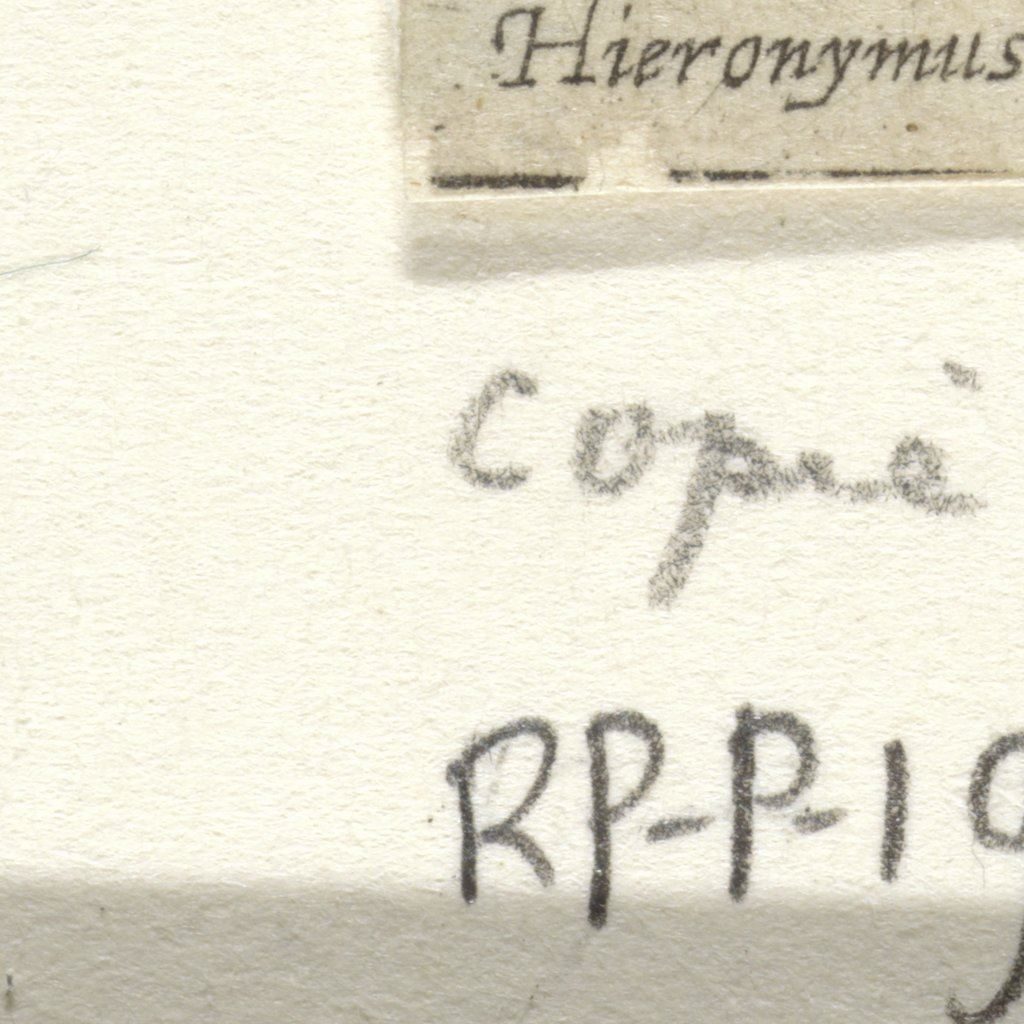 Hieronymus
Copie
RP-P-19